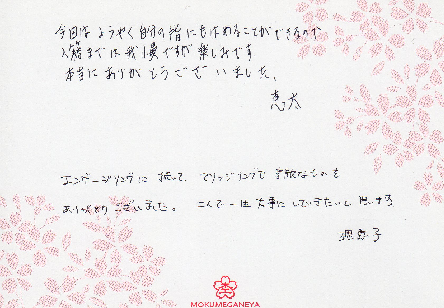 今回はようやく自分の指にもはめることができるので
入籍までは我慢ですが楽しみです
本当にありがとうございました。
恵太
エンゲージリングに続いて、マリッジリングも素敵なものを
ありがとうございました。二人で一生大事にしていきたいと思います
恵子
MOKUMEGANEYA